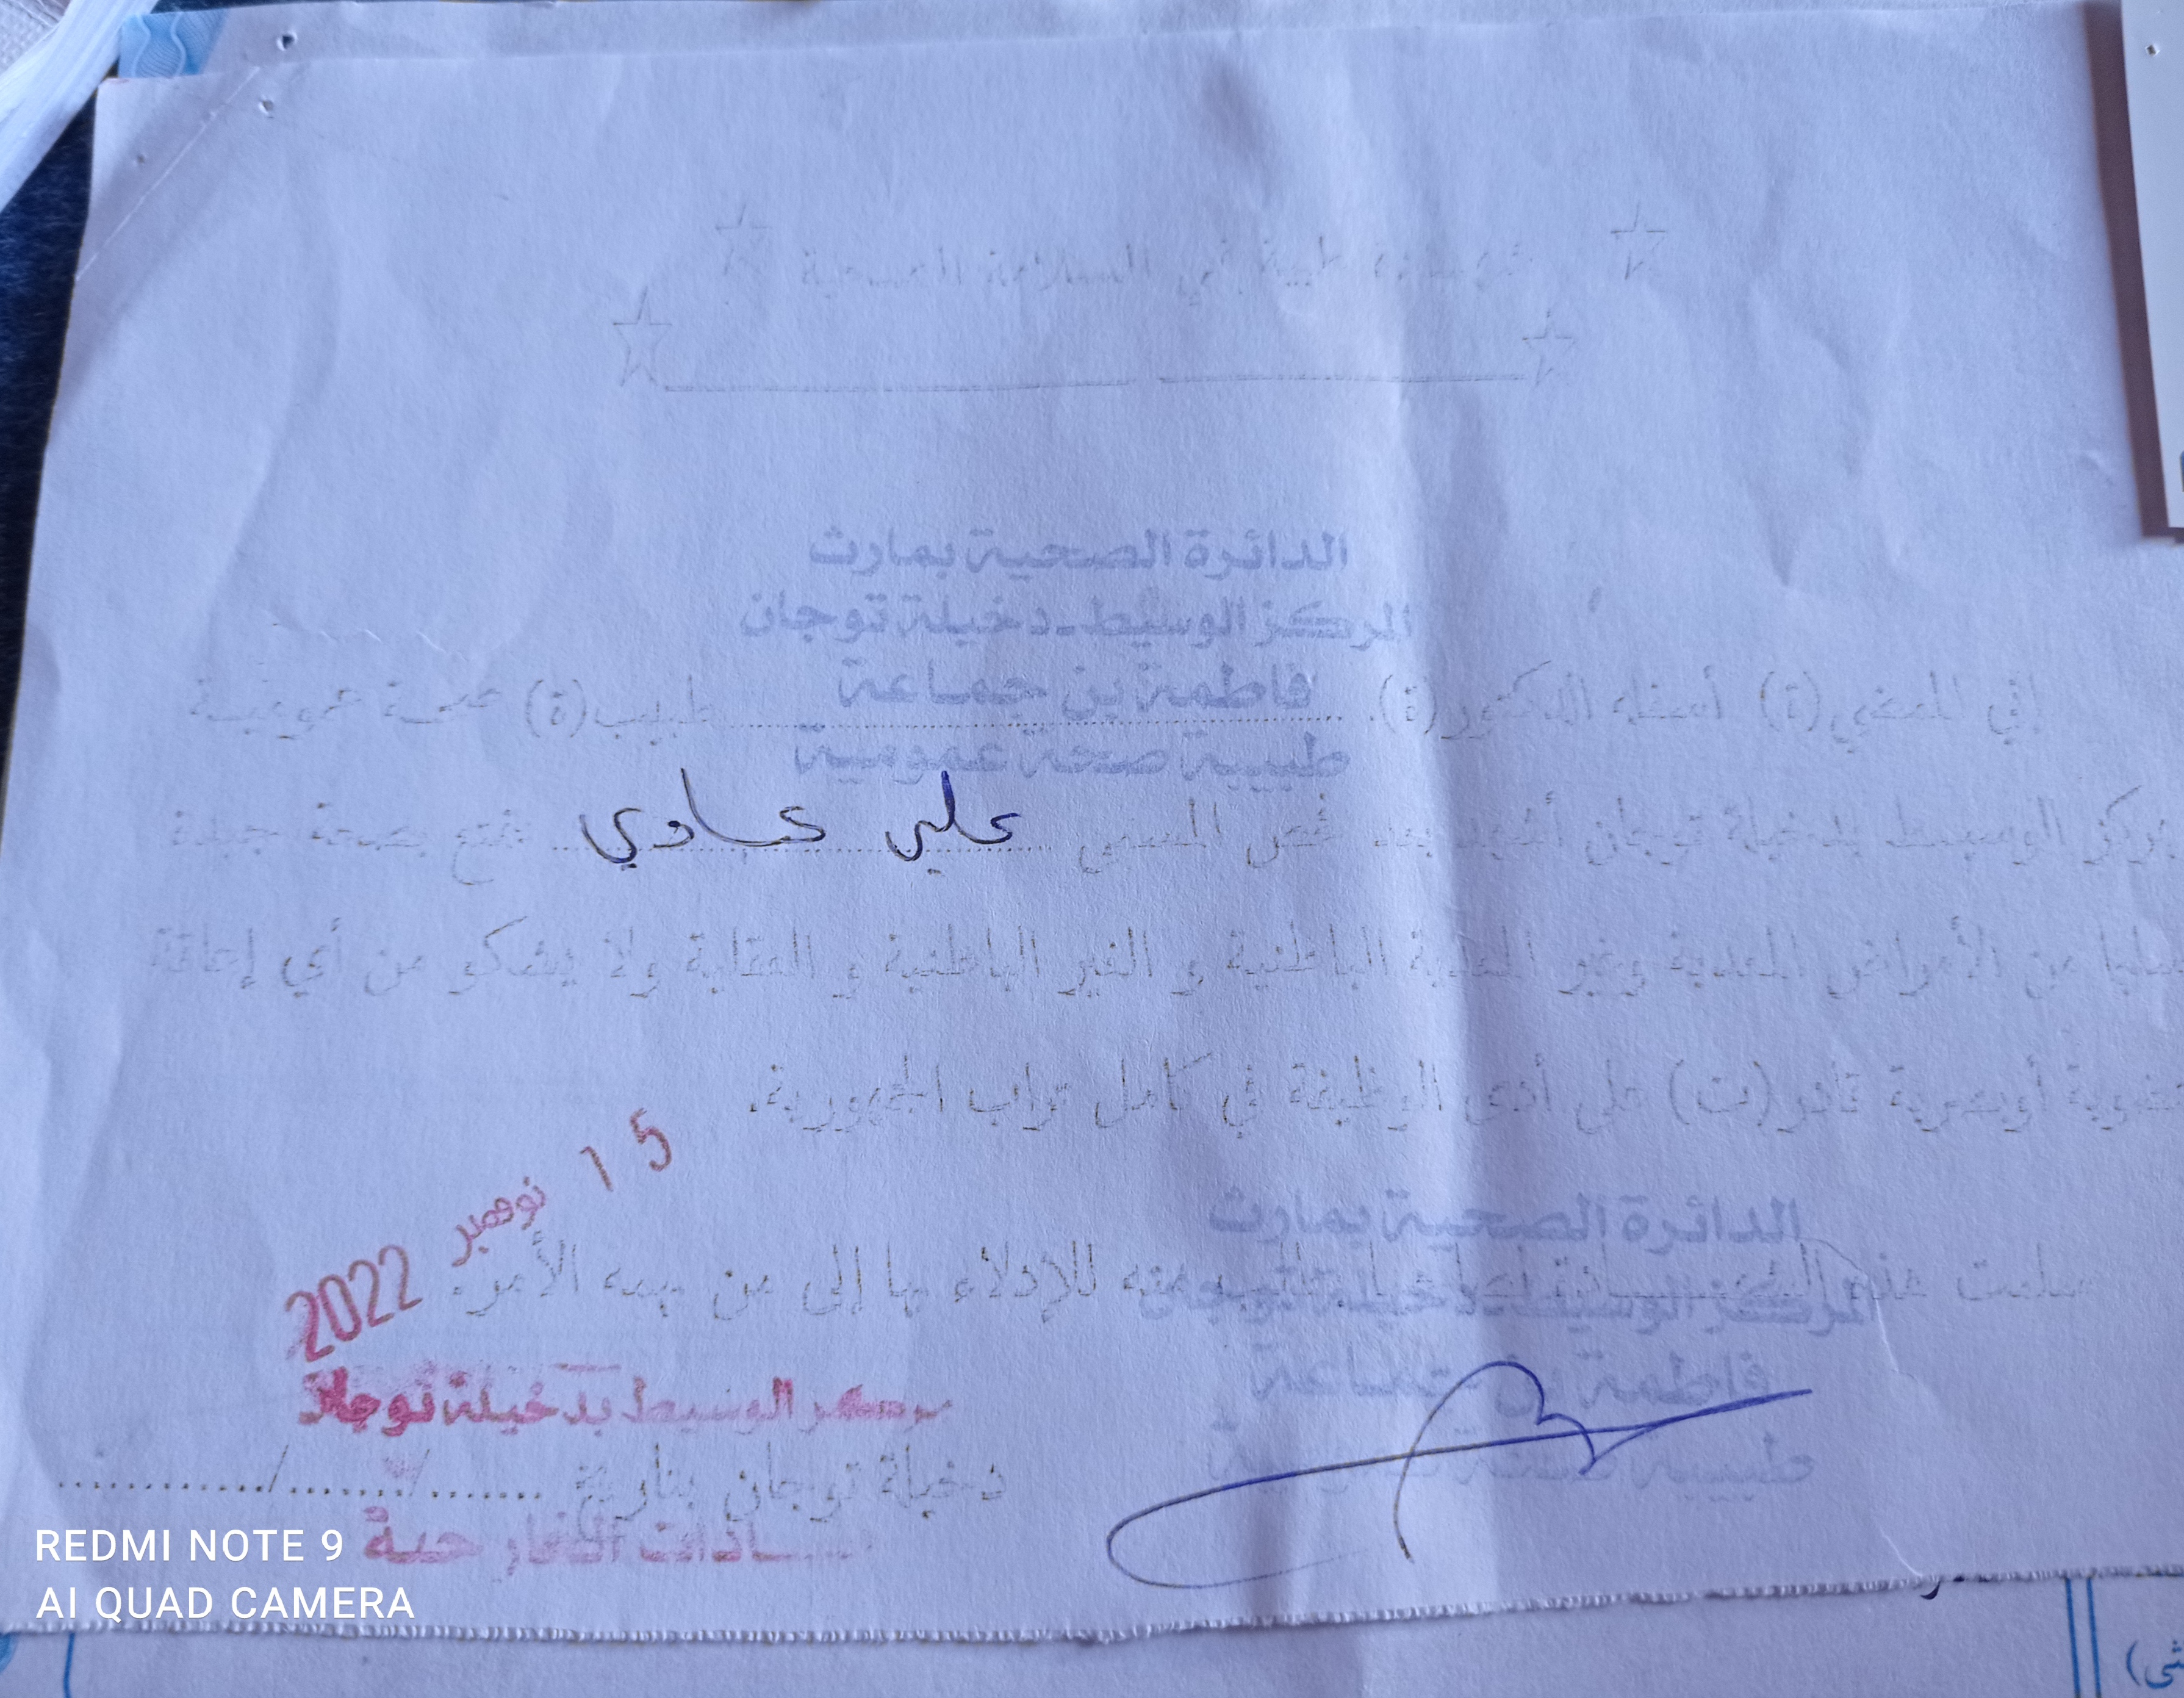 شهادة طبية في السلامة الصحية
الدائرة الصحية بمارث
المركز الوسيط-دخيلة توجان
فاطمة بن جماعة
طبيبة صحة عمومية
إني الممضي(ة) أسفله الدكتور(ة). طبيب(ة) صحة عمومية
الوسيط بدخيلة توجان أشهد بعد فحص المسمى علي عبادي تمتع بصحة جيدة
من الأمراض المعدية وغير المعدية الباطنية و الغير الباطنية و العقلية ولا يشكو من أي إعاقة
أوبصرية قادر(ت) على أدى الوظيفة في كامل تراب الجمهورية.
15 نوفمبر 2022
سلمت هذه للإدلاء بها إلى من يهمه الأمر.
الدائرة الصحية بمارث
المركز الوسيط-دخيلة توجان
فاطمة بن جماعة
طبيبة صحة عمومية
الوسيط بدخيلة توجان
دخيلة توجان بتاريخ ......./......./............
REDMI NOTE 9
AI QUAD CAMERA